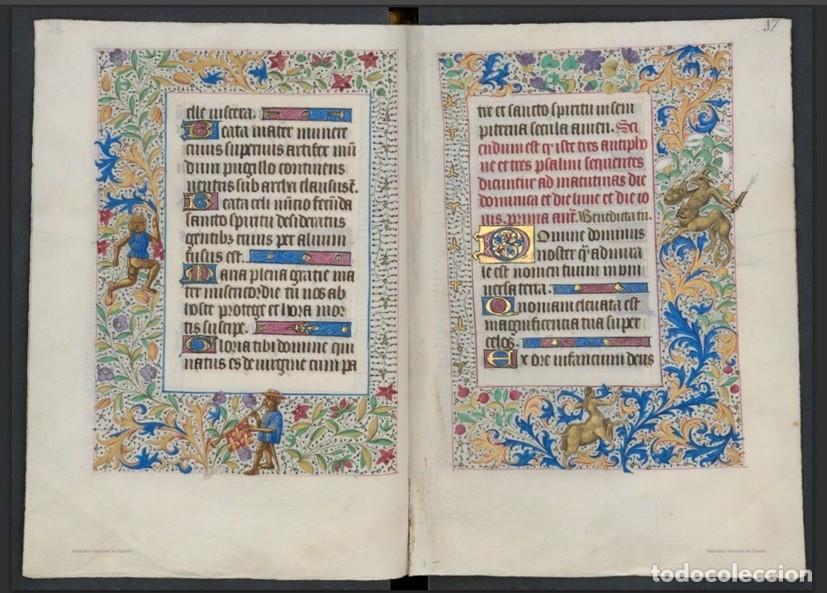 elle viscera.
Beata mater munere
cuius supernus artifex mū
dum pugillo continens
ventris sub archa clausus ē.
Beata celi nūcio fecūda
sancto spiritu desideratus
gentibꝫ cuius per aluum
fusus est.
Maria plena gratie ma
ter misericordie tu nos ab
hoste protege et hora mor
tis suscipe.
Gloria tibi domine qui
natus es de virgine cum pa
37
tre et sancto spiritu in sem
piterna secula amen. Sci
endum est qͥ iste tres antipho
ne et tres psalmi sequentes
dicuntur ad matutinas die
dominica et die lune et die io
uis. prima añ. Benedicta tu.
Domine dominus
noster qͣ admira
le est nomen tuum in vni
uersa terra.
Quoniam eleuata est
magnificentia tua super
celos.
Ex ore infancium deus
Biblioteca Nacional de España
Biblioteca Nacional de España
todocoleccion